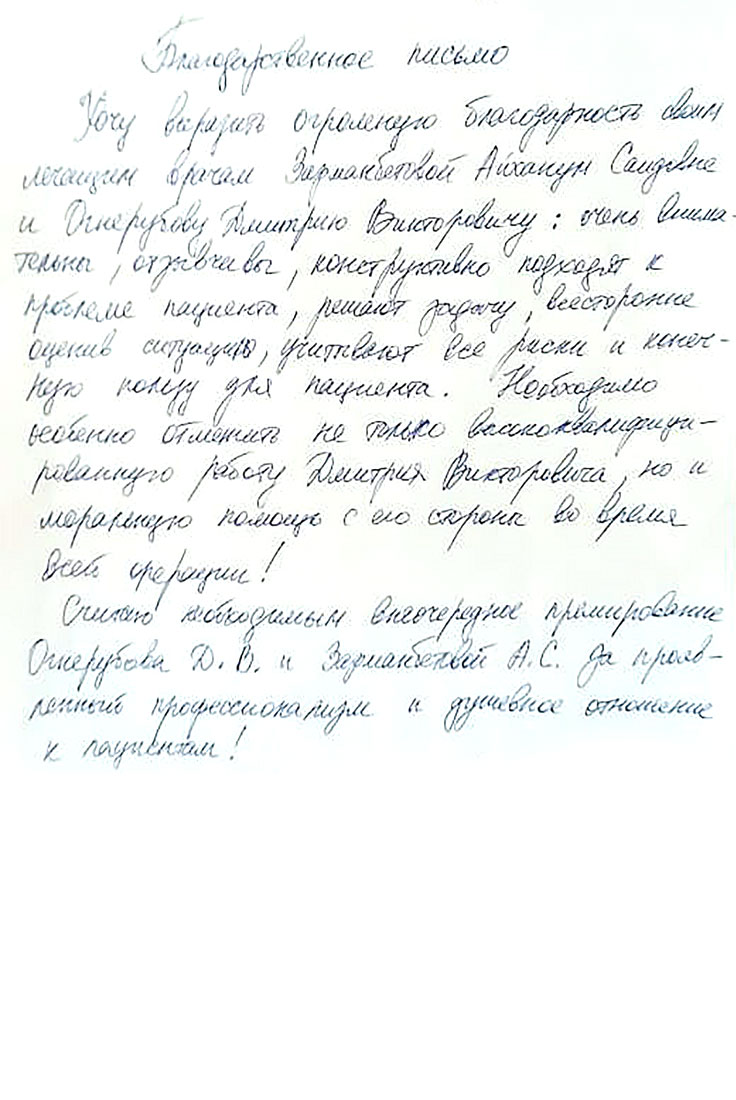 Благодарственное письмо
Хочу выразить огромную благодарность своим
лечащим врачам Зарманбетовой Айханум Саидовне
и Огнерубову Дмитрию Викторовичу: очень внима-
тельны, отзывчивы, конструктивно подходят к
проблеме пациента, решают задачу, всесторонне
оценив ситуацию, учитывают все риски и конеч-
ную пользу для пациента. Необходимо
особенно отметить не только высококвалифици-
рованную работу Дмитрия Викторовича, но и
моральную помощь с его стороны во время
всей операции!
Считаю необходимым внеочередное премирование
Огнерубова Д.В. и Зарманбетовой А.С. за прояв-
ленный профессионализм и душевное отношение
к пациентам!